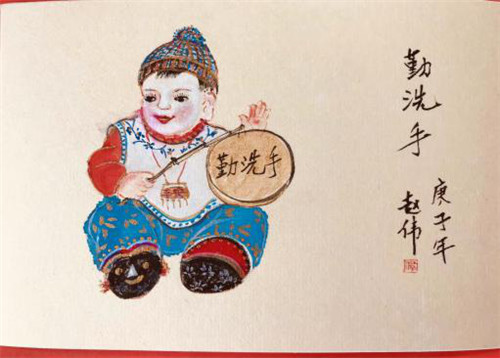 勤洗手
勤洗手
庚子年
赵伟